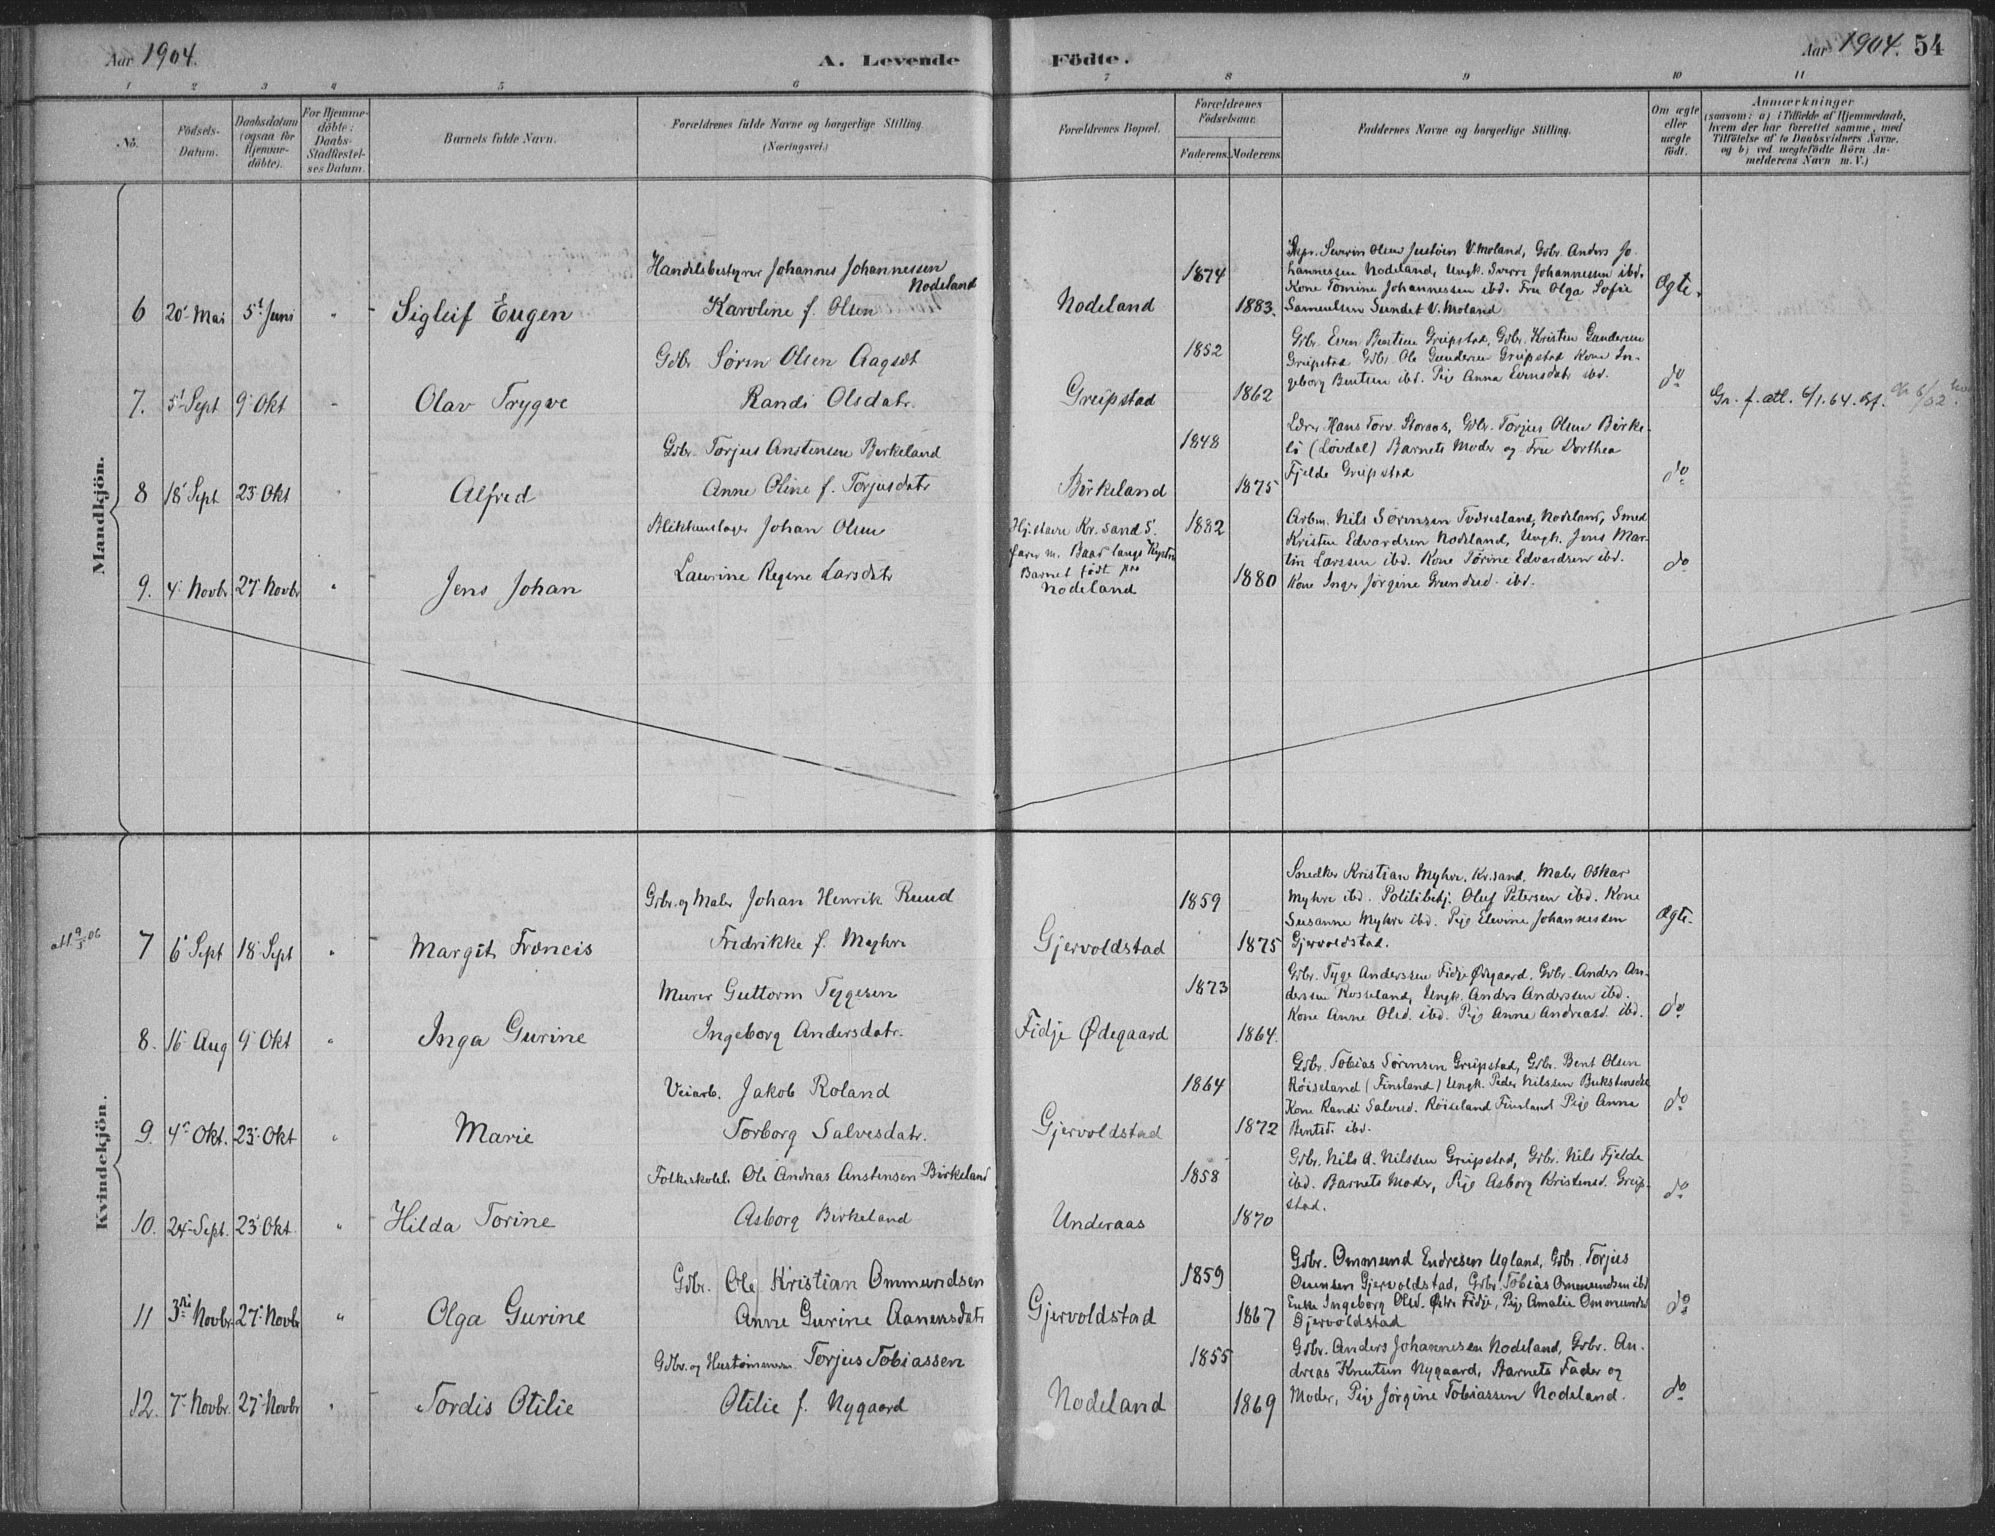 Aar 1904.
A. Levende Födte.
Aar 1904. 54
1 2 3 4 5 6 7 8 9 10 11
No.
Födsels-Datum.
Daabsdatum (ogsaa for Hjemme-döbte).
For Hjemme-döbte: Daabs-Stadfæstel-ses Datum.
Barnets fulde Navn.
Forældrenes fulde Navne og borgerlige Stilling.
(Næringsvei.)
Forældrenes Bopæl.
Forældrenes Födselsaar.
Faderens. Moderens.
Faddernes Navne og borgerlige Stilling.
Om ægte eller uægte födt.
Anmærkninger
(saasom: a) i Tilfælde af Hjemmedaab, hvem der har forrettet samme, med Tilföielse af to Daabsvidners Navne, og b) ved uægtefödte Börn An-melderens Navn m. V.)
Mandkjön.
Handelsbestyrer Johannes Johannessen Nodeland
6 20 Mai 5t Juni " Sigleif Eugen Karoline f. Olsen Nodeland 1874 1883.
Skpr. Severin Olsen Justøen V. Moland, Gdbr. Anders Jo
hannessen Nodeland, Ungk. Sverre Johannessen ibd.
Kone Tomine Johannessen ibd. Fru Olga Sofie
Samuelsen Sundet V. Moland
Ægte.
Gdbr Søren Olsen
7. 5 Sept 9 Okt - Olav Trygve Randi Olsdatr. Greipstad 1852 1862
Gdbr. Even Bentsen Greipstad, Gdbr. Kristen Gundersen
Greipstad Gdbr. Ole Gundersen Greipstad Kone In-
geborg Bentsen ibd. Pige Anna Evensdatr ibd.
do
Gr. f. att. 6/1.64.
Gdbr. Torjus Anstensen Birkeland
8 18 Sept 23 Okt " Alfred Anne Oline f. Torjusdatr Birkeland 1848 1875
Lærer Hans Torv. Storaas, Gdbr. Torjus Olsen Birke-
(Løvdal) Barnets Moder og Fru Dorthea
Fjelde Greipstad
do
Blikkenslager Johan Olsen
9. 4 Novbr 27 Novbr " Jens Johan Laurine Regine Larsdatr
Hj. støvre Kr. sand S.
farer m. Baad langs Kysten
Barnet født paa
Nodeland
1882 1880
Arbm. Nils Sørensen Tveresland, Nodeland, Smed
Kristen Edvardsen Nodeland, Ungk. Jens Mar-
tin Larssen ibd. Kone Tørine Edvardsen ibd.
Kone Inger Jørgine ibd.
do
Kvindekjön.
att 9/5 06
Gdbr. og Maler Johan Henrik Ruud
7 6 Sept 18 Sept " Margit Francis Fredrikke f. Myhre Gjervoldstad 1859 1875
Snedker Kristian Myhre. Kr.sand, Maler Oskar
Myhre ibd. Politibetj. Oluf Petersen ibd. Kone
Susanne Myhre ibd. Pige Elevine Johannessen
Gjervoldstad.
Ægte.
Murer Guttorm Tygesen
8. 16 Aug 9 Okt " Inga Gurine Ingeborg Andersdatr. Fidje Ødegaard 1873 1864.
Gdbr. Tyge Anderssen Fidje Ødegaard, Gdbr. Anders An-
derssen Rosseland, Ungk. Anders Anderssen ibd.
Kone Anne Olsd. ibd. Pige Anne Andreasd. ibd.
do
Veiarb. Jakob Roland
9. 4 Okt. 23 Okt " Marie Torborg Salvesdatr. Gjervoldstad 1864 1872
Gdbr. Tobias Sørensen Greipstad, Gdbr. Bent Olsen
Røiseland (Finsland) Ungk. Peder Nilssen
Kone Randi Salvesd. Røiseland Finsland Pige Anna
Bentsd. ibd.
do
Folkeskolel. Ole Andreas Anstensen Birkeland
10. 24 Sept. 23 Okt " Hilda Torine Asborg Birkeland Underaas 1858 1870
Gdbr. Nils A. Nilssen Greipstad, Gdbr. Nils Fjelde
ibd. Barnets Moder, Pige Asborg Kristensd. Greip-
stad.
do
Gdbr. Ole Kristian Ommundsen
11 3die Novbr. 27 Novbr " Olga Gurine Anne Gurine Aanensdatr Gjervoldstad 1859 1867
Gdbr. Ommund Endresen Ugland, Gdbr. Torjus
Omensen Gjervoldstad, Gdbr. Tobias Ommundsen ibd
Enke Ingeborg Olsd. Østre Fidje, Pige Amalie Ommundsd
Gjervoldstad
do
Gdbr. og Hustømmerm. Torjus Tobiassen
12. 7 Novbr. 27 Novbr " Tordis Otilie Otilie f. Nygaard Nodeland 1855 1869
Gdbr. Anders Johannesen Nodeland, Gdbr. An-
dreas Knutsen Nygaard, Barnets Fader og
Moder, Pige Jørgine Tobiassen Nodeland.
do